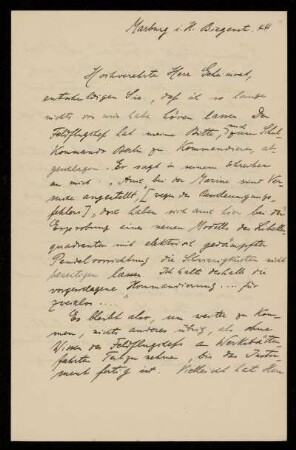 Marburg i. H. Biegenst. 44
Hochverehrter Herr Geheimrat,
entschuldigen Sie, daß ich so lange
nichts von mir habe hören lassen. Der
Feldflugchef hat meine Bitte, mich
Kommando Berlin zu kommandieren, ab-
geschlagen. Er sagt in seinem Schreiben
an mich: „Auch bei der Marine sind Ver-
suche angestellt, [wegen des
fehlers], dort haben sich auch hier bei der
Erprobung eines neuen Modells des Libellen-
quadranten mit elektrisch gedämpfter
Pendelvorrichtung die Schwierigkeiten nicht
beseitigen lassen. Ich halte deshalb die
vorgeschlagene Kommandierung .... für
zwecklos ....
Es bleibt also, um weiter zu kom-
men, nichts anderes übrig, als ohne
Wissen des Feldflugchefs an Werkstätten-
fahrten teilzunehmen, bis das Instru-
ment fertig ist. Vielleicht hat Herr